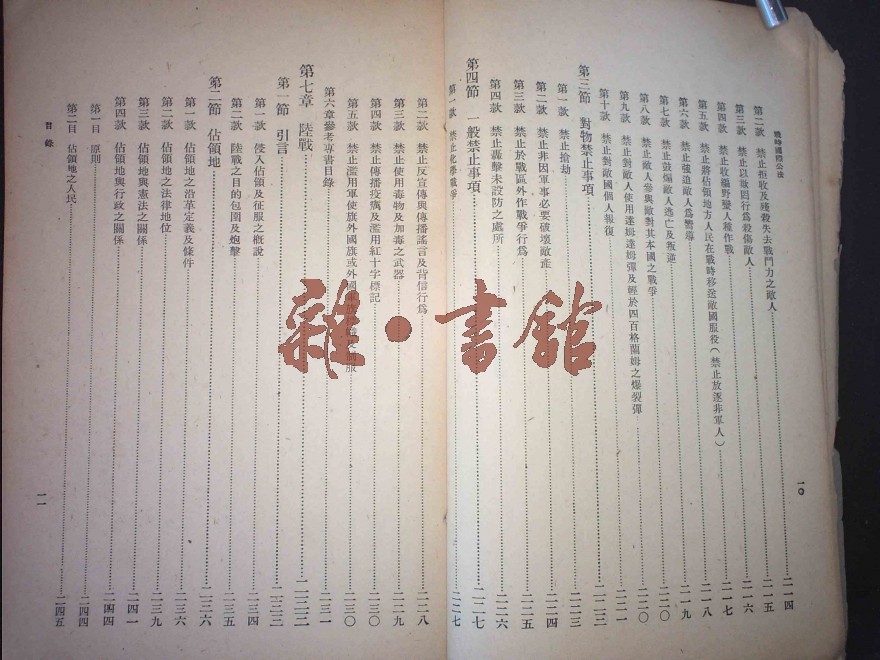 戰時國際公法
第二款 禁止拒收及殘殺失去戰鬥力之敵人 二一四
第三款 禁止以欺罔行為殺傷敵人 二一五
第四款 禁止收編野蠻人種作戰 二一六
第五款 禁止將佔領地方人民在戰時移送敵國服役(禁止放逐非軍人) 二一七
第六款 禁止強迫敵人為嚮導 二一八
第七款 禁止鼓煽敵人逃亡及叛逆 二一九
第八款 禁止敵人參與敵對其本國之戰爭 二二〇
第九款 禁止對敵人使用達姆達姆彈及輕於四百格蘭姆之爆裂彈 二二〇
第十款 禁止對敵國個人報復 二二一
第三節 對物禁止事項 二二三
第一款 禁止搶劫 二二三
第二款 禁止非因軍事必要破壞敵產 二二四
第三款 禁止於戰區外作戰爭行為 二二五
第四款 禁止轟擊未設防之處所 二二六
第四節 一般禁止事項 二二七
第一款 禁止化學戰爭 二二七
一〇
第二款 禁止反宣傳與傳播謠言及背信行為 二二八
第三款 禁止使用毒物及加毒之武器 二二九
第四款 禁止傳播疫癘及濫用紅十字標記 二三〇
第五款 禁止濫用軍使旗外國旗或外國 服 二三〇
第六章參考專書目錄 二三一
第七章 陸戰 二三三
第一節 引言 二三三
第一款 侵入佔領及征服之概說 二三四
第二款 陸戰之目的包圍及炮擊 二三五
第二節 佔領地 二三六
第一款 佔領地之沿革定義及條件 二三六
第二款 佔領地之法律地位 二三九
第三款 佔領地與憲法之關係 二四一
第四款 佔領地與行政之關係 二四四
第一目 原則 二四四
第二目 佔領地之人民 二四五
目錄
一一
雜·書館